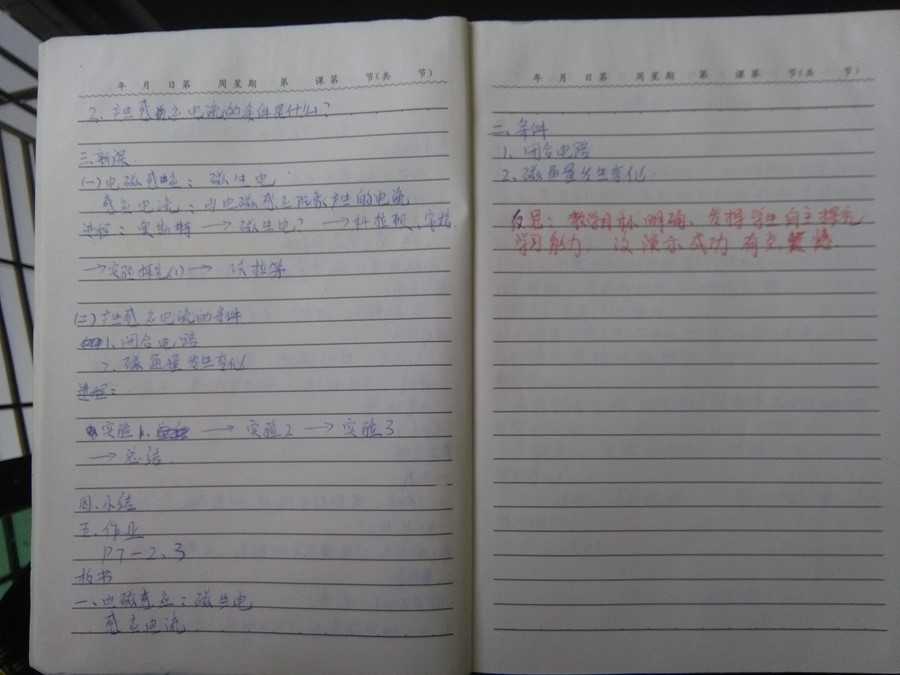 年 月 日第 周星期 第 课第 节(共 节)
2、产生感应电流的条件是什么?
三、新课
(一)电磁感应：磁生电
感应电流：由电磁感应现象产生的电流
进程：奥斯特 → 磁生电? → 科拉顿、安培
→实验探究(1)→ 法拉第
(二)产生感应电流的条件
1、闭合电路
2、磁通量发生变化
进程：
实验1、 → 实验2 → 实验3
→ 总结
四、小结
五、作业
P7-2、3
板书
一、电磁感应：磁生电
感应电流
年 月 日第 周星期 第 课第 节(共 节)
二、条件
1、闭合电路
2、磁通量发生变化
反思：教学目标明确、发挥学生自主探究
学习能力 演示成功 有点